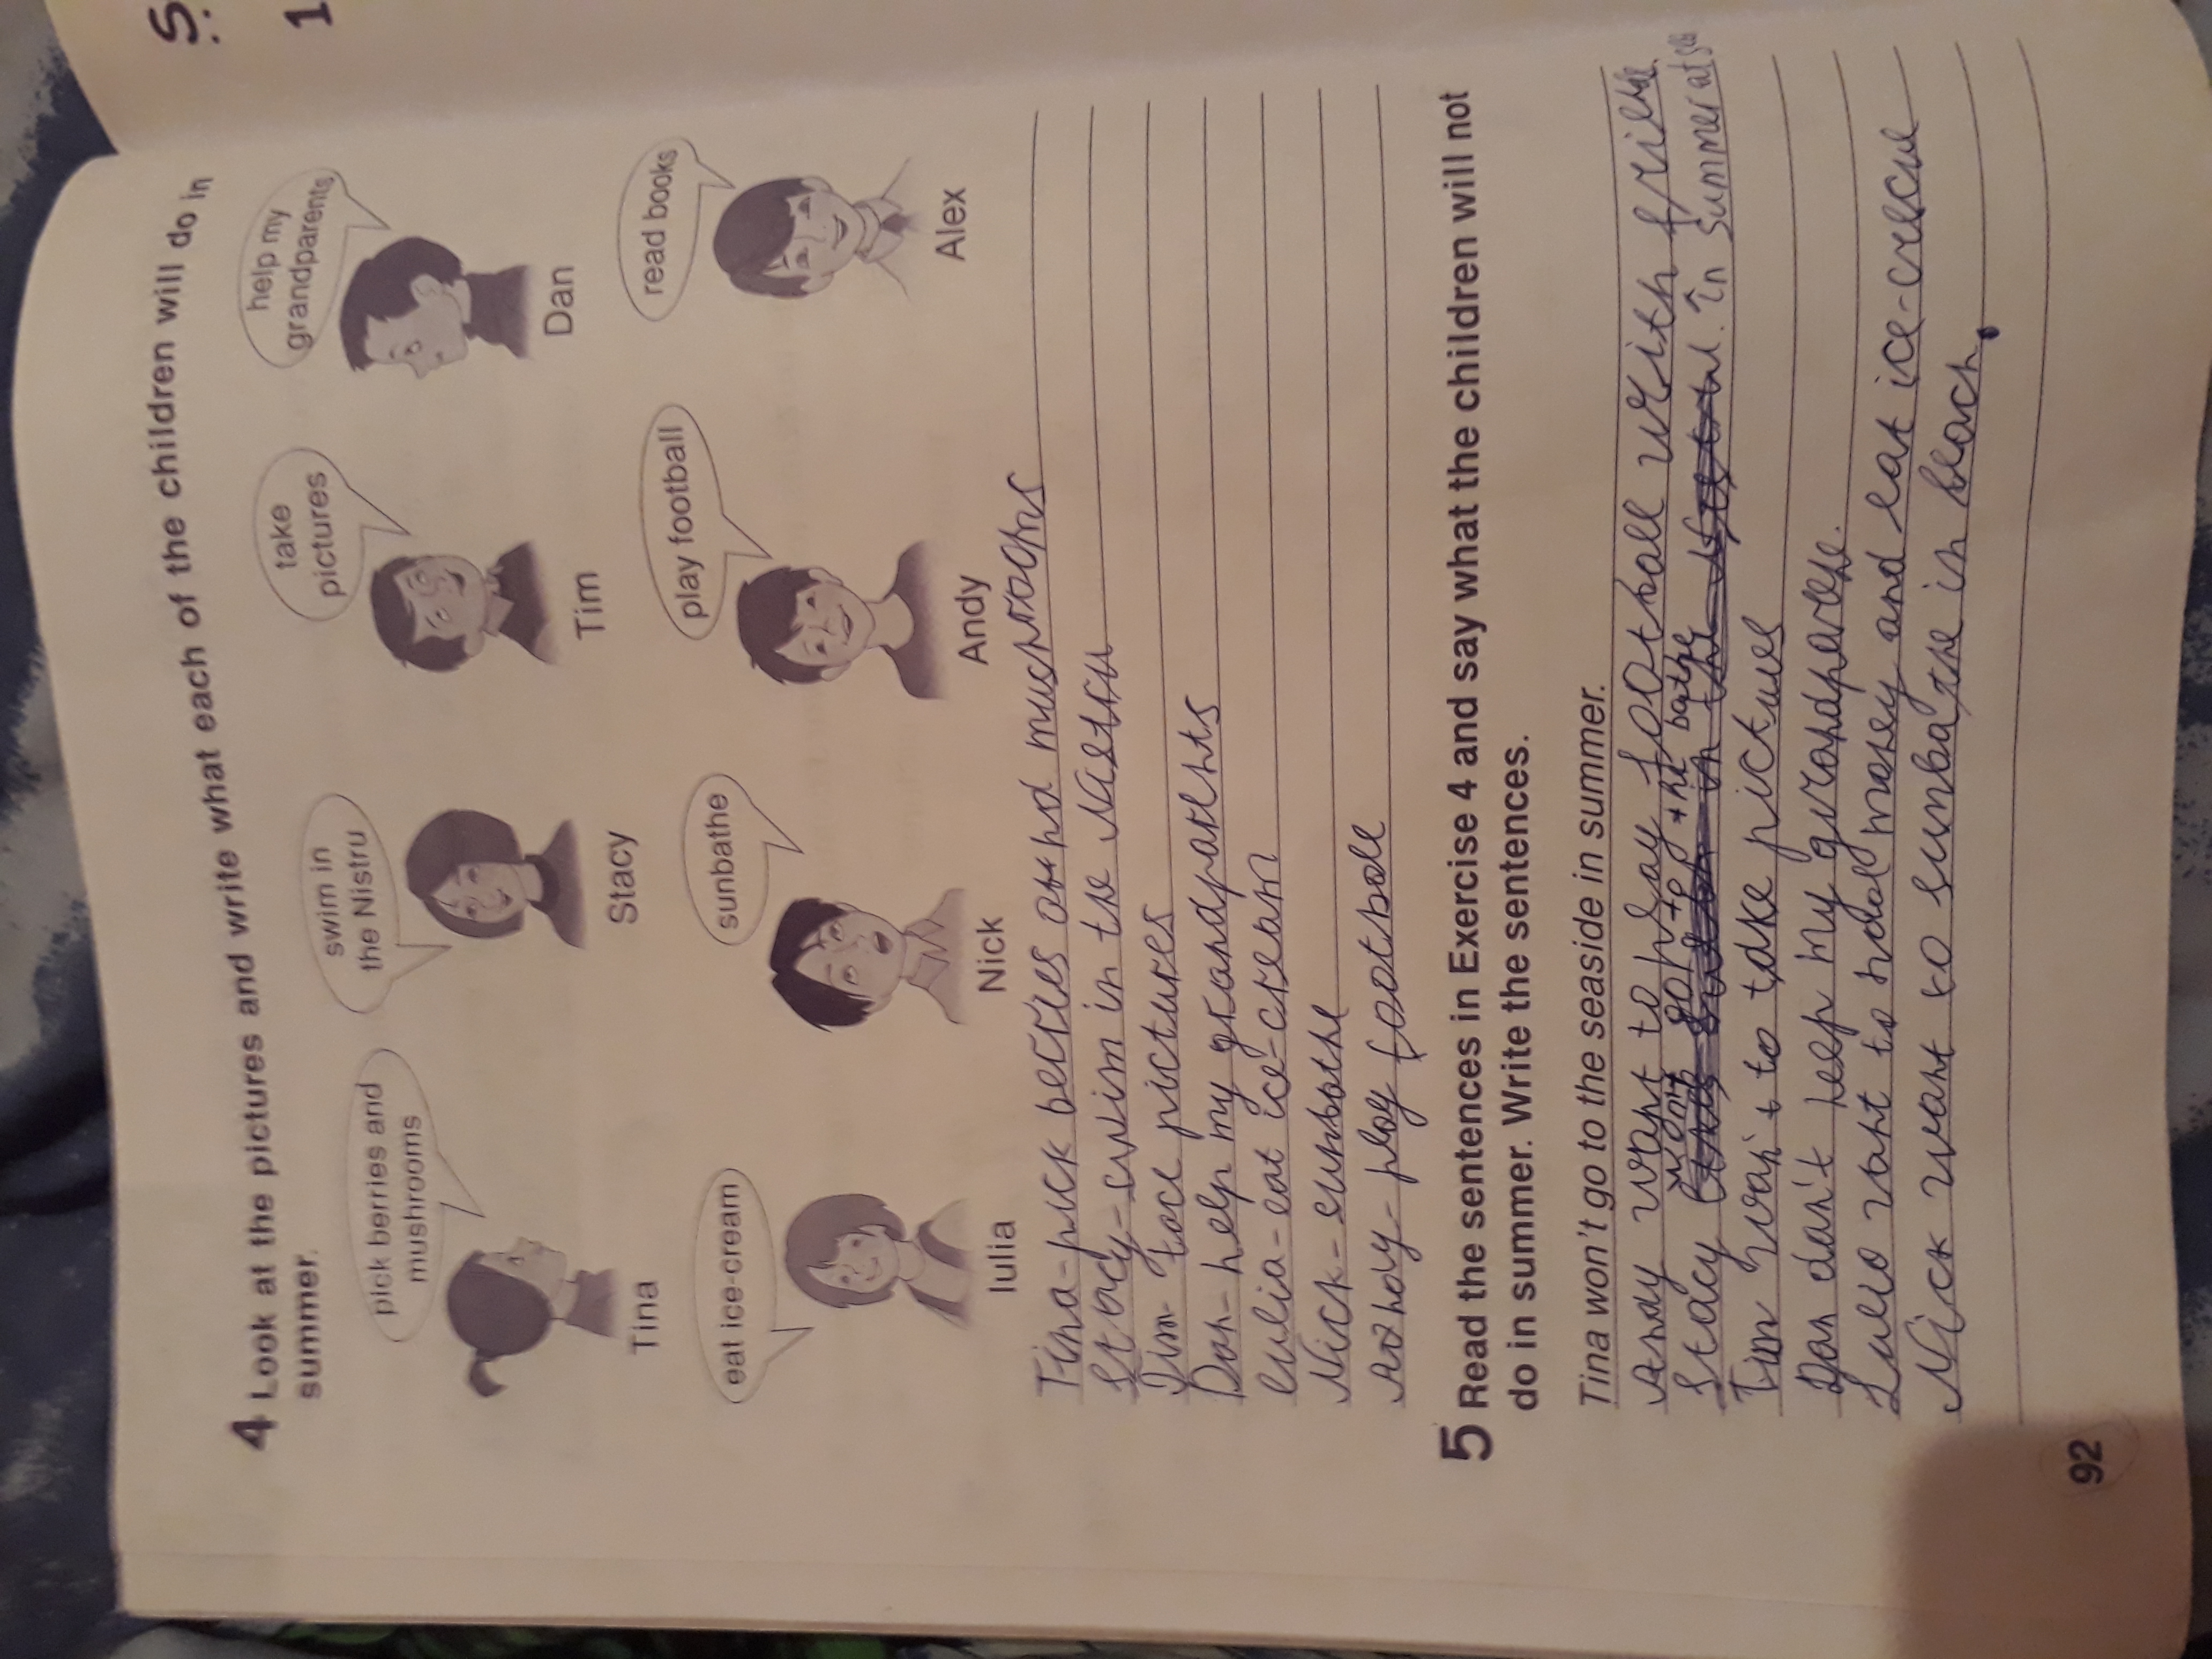 S.
1
4 Look at the pictures and write what each of the children will do in
summer.
pick berries and
mushrooms
swim in
the Nistru
take
pictures
help my
grandparents
Tina
Stacy
Tim
Dan
eat ice-cream
sunbathe
play football
read books
Iulia
Nick
Andy
Alex
Tina-pick berries and muchrooms
Stacy-swim in to Nistru
Tim- take pictures
Dan- help my grandparents
Eulia-eat ice-cream
Nick-sunbathe
Andy- play football
5 Read the sentences in Exercise 4 and say what the children will not
do in summer. Write the sentences.
Tina won't go to the seaside in summer.
Andy want to play football with
won't go to the
Stacy in summer at sea
Tim wan't to take pictues
Dan dan't help my
want to and eat ice-cream
Nick want to sunbathe in beach.
92